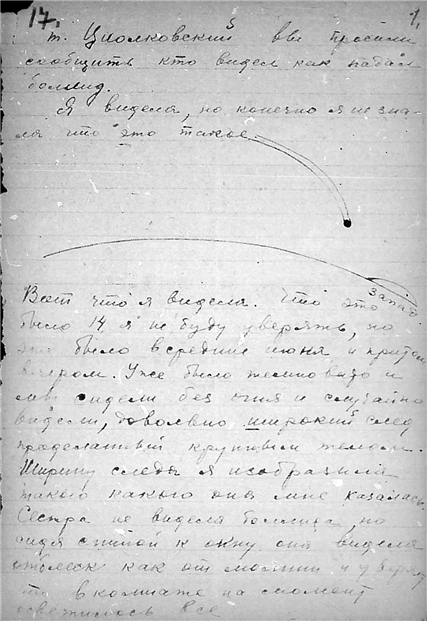 17. 1.
т. Циолковский вы просили
сообщить кто видел как падал
болид.
Я видела, но конечно я не зна-
ла что это такое.
запад
Вот что я видела. Что это
было 14 я не буду уверять, но
это было в средине июня и притом
вечером. Уже было темновато и
мы сидели без огня и случайно
видели, довольно широкий след
проделанный круглым телом.
Ширину следа я изобразила
такого какого она мне казалась.
Сестра не видела болида, но
сидя спиной к окну она видела
отблеск как от молнии и уверяет
в комнате на момент
осветилось все